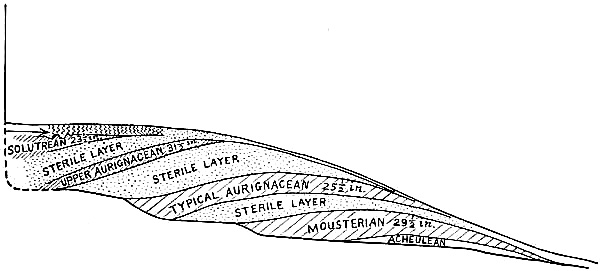 SOLUTREAN 23½ in.
STERILE LAYER
UPPER AURIGNACEAN 31½ in.
STERILE LAYER
TYPICAL AURIGNACEAN 25½ in.
STERILE LAYER
MOUSTERIAN 29½ in.
ACHEULEAN